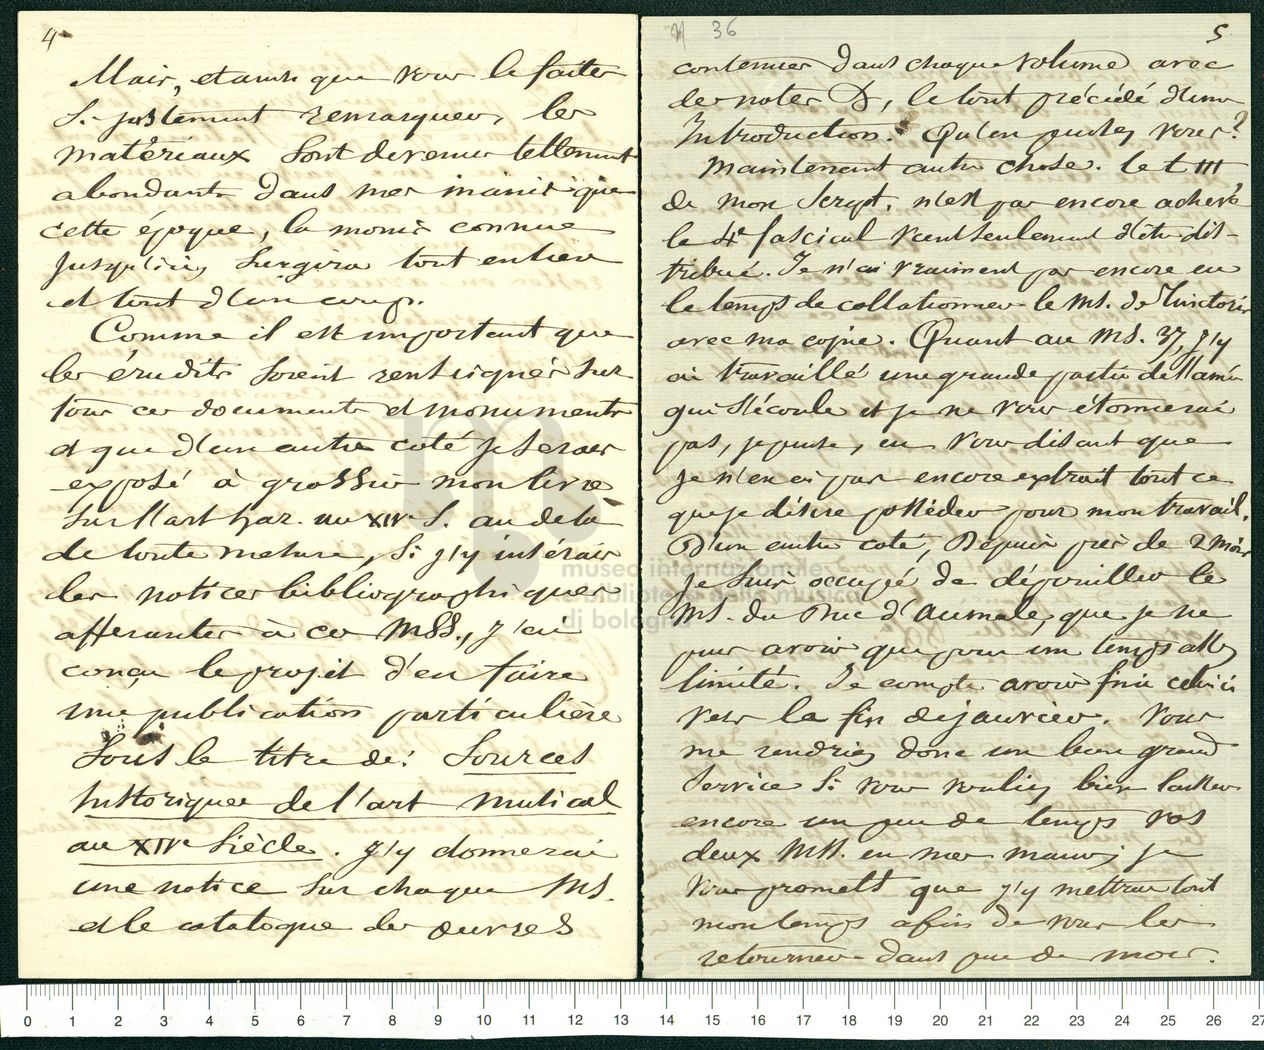 4
Mais, et ainsi que vous le faites
si justement remarquer, les
matériaux sont devenus tellement
abondants dans mes mains que
cette époque, la moins connue
jusqu'ici, surgira tout entière
et tout d'un coup.
Comme il est important que
les érudits soient renseignés sur
tous ces documents et monuments
et que d'un autre coté je serais
exposé à grossir mon livre
sur l'art har. au XIVe S. au delà
de toute mesure, si j'y insérais
les notices bibliographiques
afférantes à ces MSS., j'ai
conçu le projet d'en faire
une publication particulière
sous le titre de: Sources
historiques de l'art musical
au XIVe Siècle. J'y donnerai
une notice sur chaque MS.
et le catalogue des œuvres
36
5
contenues dans chaque volume avec
des notes &, le tout précédé d'une
Introduction. Qu'en pensez vous?
Maintenant autre chose. Le t III
de mon Script. n'est pas encore achevé
le 4e fascicul vient seulement d'être dis-
tribué. Je n'ai vraiment pas encore eu
le temps de collationner le MS. de Tinctoris
avec ma copie. Quant au MS. 37, j'y
ai travaillé une grande partie de l'année
qui s'écoule et je ne vous étonnerai
pas, je pense, en vous disant que
je n'en ai pas encore extrait tout ce
que je désire posséder pour mon travail.
D'un autre coté, Depuis près de 2 mois
je suis occupé de dépouiller le
MS. du Duc d'Aumale, que je ne
puis avoir que pour un temps assez
limité. Je compte avoir fini celui ci
vers la fin de janvier. Vous
me rendriez donc un bien grand
service si vous vouliez bien laisser
encore un peu de temps vos
deux MSS. en mes mains; je
vous promets que j'y mettrai tout
mon temps afin de vous les
retourner dans peu de mois.
museo internazionale
e biblioteca della musica
di bologna
0 1 2 3 4 5 6 7 8 9 10 11 12 13 14 15 16 17 18 19 20 21 22 23 24 25 26 27